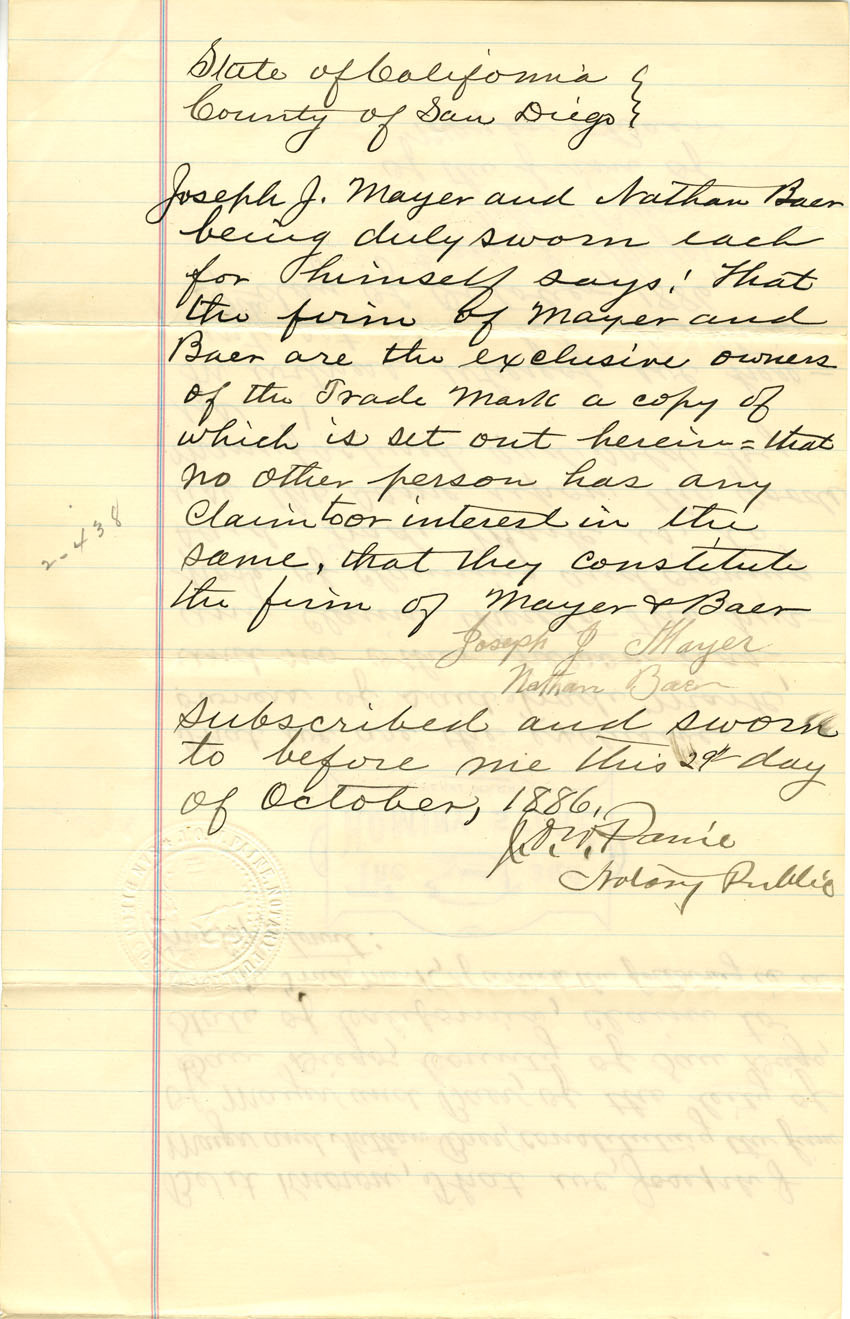 State of California }
County of San Diego }
Joseph J. Mayer and Nathan Baer
being duly sworn each
for himself says: That
the firm of Mayer and
Baer are the exclusive owners
of the Trade Mark a copy of
which is set out herein = that
no other person has any
claim to or interest in the
same, that they constitute
the firm of Mayer & Baer
Joseph J Mayer
Nathan Baer
Subscribed and sworn
to before me this 29th day
of October, 1886.
Notary Public
2-438